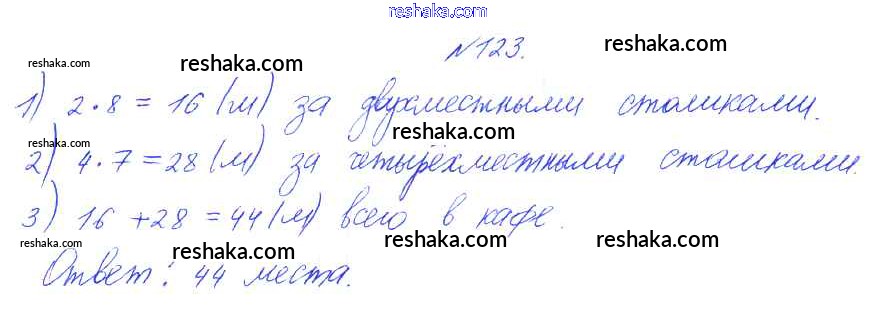 reshaka.com
№123.
reshaka.com
reshaka.com
reshaka.com
1) 2·8=16 (м) за двухместными столиками.
reshaka.com
reshaka.com
2) 4·7=28 (м) за четырёхместными столиками.
3) 16+28=44 (м) всего в кафе.
reshaka.com
reshaka.com
reshaka.com
reshaka.com
Ответ: 44 места.